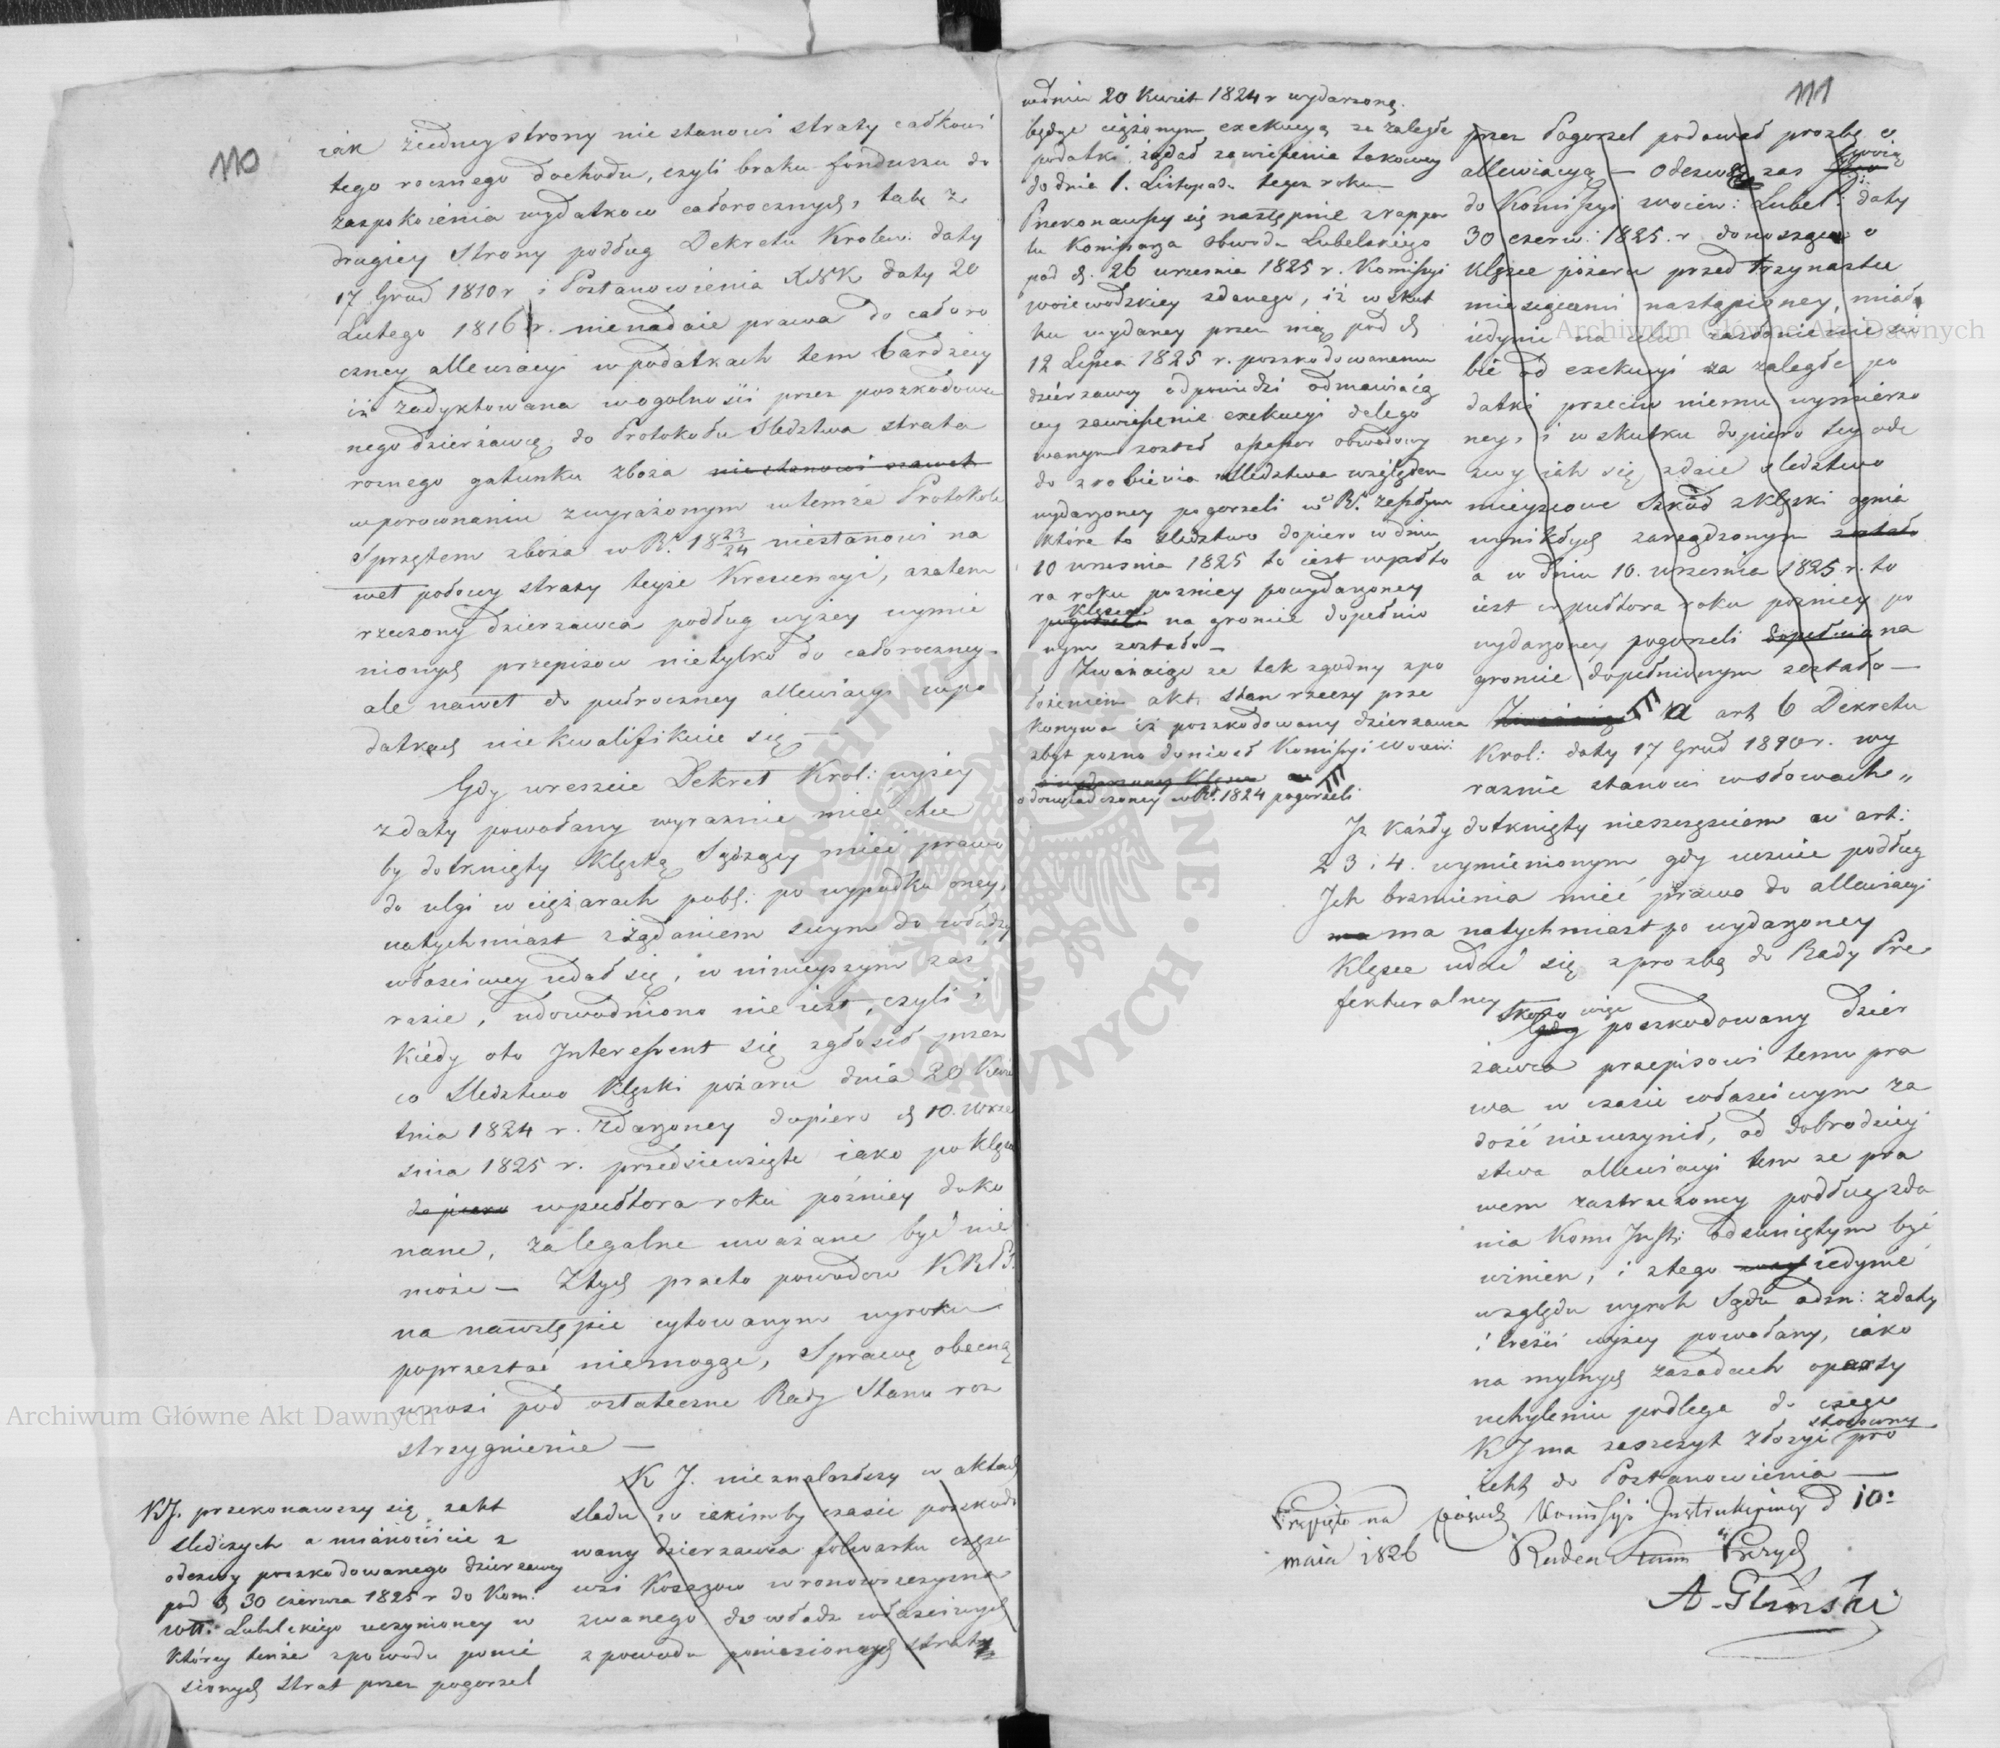 110
iak żedney strony nie stanowi straty całkowi
tego rocznego dochodu, czyli braku funduszu do
zaspokoienia wydatkow całorocznych, tak z
drugiey strony podług Dekretu Krolew: daty
17 Grud 1810 r i Postanowienia XNK daty 20
Lutego 1816 r. nienadaie prawa do całoro
czney allewiacyi w podatkach tem bardziey
iż zadyktowana wogolności przez poszkodowa
nego dzierżawcę do Protokołu Sledztwa strata
roznego gatunku zboża nie stanowi nawet
w porownaniu z wyrażonym w temże Protokole
Sprzętem zboża w R. 18 23/24 niestanowi na
wet połowy straty teyże Krescencyi, azatem
rzeczony dzierzawca podług wyżey wymie
nionych przepisow nietylko do całoroczney
ale nawet do pułroczney allewiacyi w po
datkach niekwalifikuie się —
Gdy wreszcie Dekret Krol: wyżey
z daty powołany wyraznie mieć chce
by dotknięty klęską Sądzący mieć prawo
do ulgi w ciężarach publ: po wypadku oney,
natychmiast z żądaniem swym do władzy
właściwey udał się, w ninieyszym zas
razie, udowodniono nie iest, czyli i
kiedy oto Interessent się zgłosił przez
co Sledztwo klęski pożaru dnia 20 Kwie
tnia 1824 r. zdarzoney dopiero d 10. Wrze
snia 1825 r. przedsiewzięte iako po klęsce
dopiero wpułtora roku pożniey doko
nane, za legalne uważane być nie
może — Ztych przeto powodow KRPS.
na nawstępie cytowanym wyroku
poprzestać niemogąc, Sprawę obecną
wnosi pod ostateczne Rady Stanu roz
strzygnienie —
K J. nieznalazłszy w aktach
sladu w iakimby czasie poszkodo
wany dzierzawca folwarku częsci
wsi Koszzow wronowszczyzna
zwanego do władz właściwych
z powodu poniesionych straty
KJ. przekonawszy się z akt
sledczych a mianowicie z
odezwy poszkodowanego dzierzawcy
pod d 30 czerwca 1825 r do Kom:
wtt. Lubelskiego uczynioney w
którey tenże z powodu ponie
sionych strat przez pogorzel
w dniu 20 Kwiet 1824 r wydarzoną
będąc ciężonym exekucyą za zaległe
podatki żądał zawieszenie takowey
do dnia 1. Listopada tegoż roku —
Przekonawszy się następnie z rappor
tu Komissarza Obwodu Lubelskiego
pod d. 26 wrzesnia 1825 r. Komissyi
woiewodzkiey zdanego, iż w skut
ku wydaney przez nią pod d
12 Lipca 1825 r. poszkodowanemu
dzierzawcy odpowiedzi odmawiaią
cey zawieszenie exekucyi delego
wanym został assessor obwodowy
do zrobienia sledztwa względem
wydarzoney pogorzeli w R. zeszłym
które to sledztwo dopiero w dniu
10 wrzesnia 1825 to iest wpułto
ra roku pozniey po wydarzoney
klęsce
pogorzeli na groncie dopełnio
nym zostało —
Zważaiąc ze tak zgodny z po
łożeniem akt, stan rzeczy prze
konywa iż poszkodowany dzierzawca
zbyt pozno doniosł Komissyi Woiew:
o wydarzoney klęsce
o doswiadczoney w R. 1824 pogorzeli
111
przez Pogorzel podawał prozbę o
allewiacyą — Odezwą zas swoią
do Komissyi woiew: Lubel: daty
30 czerw: 1825. r donosząc o
klęsce pożaru przed trzynastu
miesięcami nastąpioney, miał
iedynie na celu zasłonienie sie
bie od exekucyi za zaległe po
datki przeciw niemu wymierzo
ney, i w skutku dopiero tey ode
zwy iak się zdaie sledztwo
mieyscowe Szkod z klęski ognia
wynikłych zarządzonym zostało
a w dniu 10. wrzesnia 1825 r. to
iest w pułtora roku pozniey po
wydarzoney pogorzeli dopełnio na
groncie dopełnionym zostało —
Zważaiąc a art 6 Dekretu
Krol: daty 17 Grud 1810 r. wy
raznie stanowi w słowach „
Iż każdy dotknięty nieszczęsciem w art:
2 3 i 4. wymienionym gdy uczuie podług
Ich brzmienia mieć prawo do allewiacyi
ma natychmiast po wydarzoney
Klęsce udać się z prozbą do Rady Pre
fekturalney
Skoro więc
Gdy poszkodowany dzier
żawca przepisowi temu pra
wa w czasie właściwym za
dość nieuczynił, od dobrodziey
stwa allewiacyi tem ze pra
wem zastrzezoney podług zda
nia Kom: Instr: odsuniętym być
winien, i z tego iedynie
względu wyrok Sądu adm: z daty
i treści wyżey powołany, iako
na mylnych zasadach oparty
uchyleniu podlega do czego
stosowny
KJ ma zaszczyt złożyć pro
iekt do Postanowienia —
Przyięto na posiedz Komissyi Instrukcyiney d 10:
maia 1826
A. Gliński